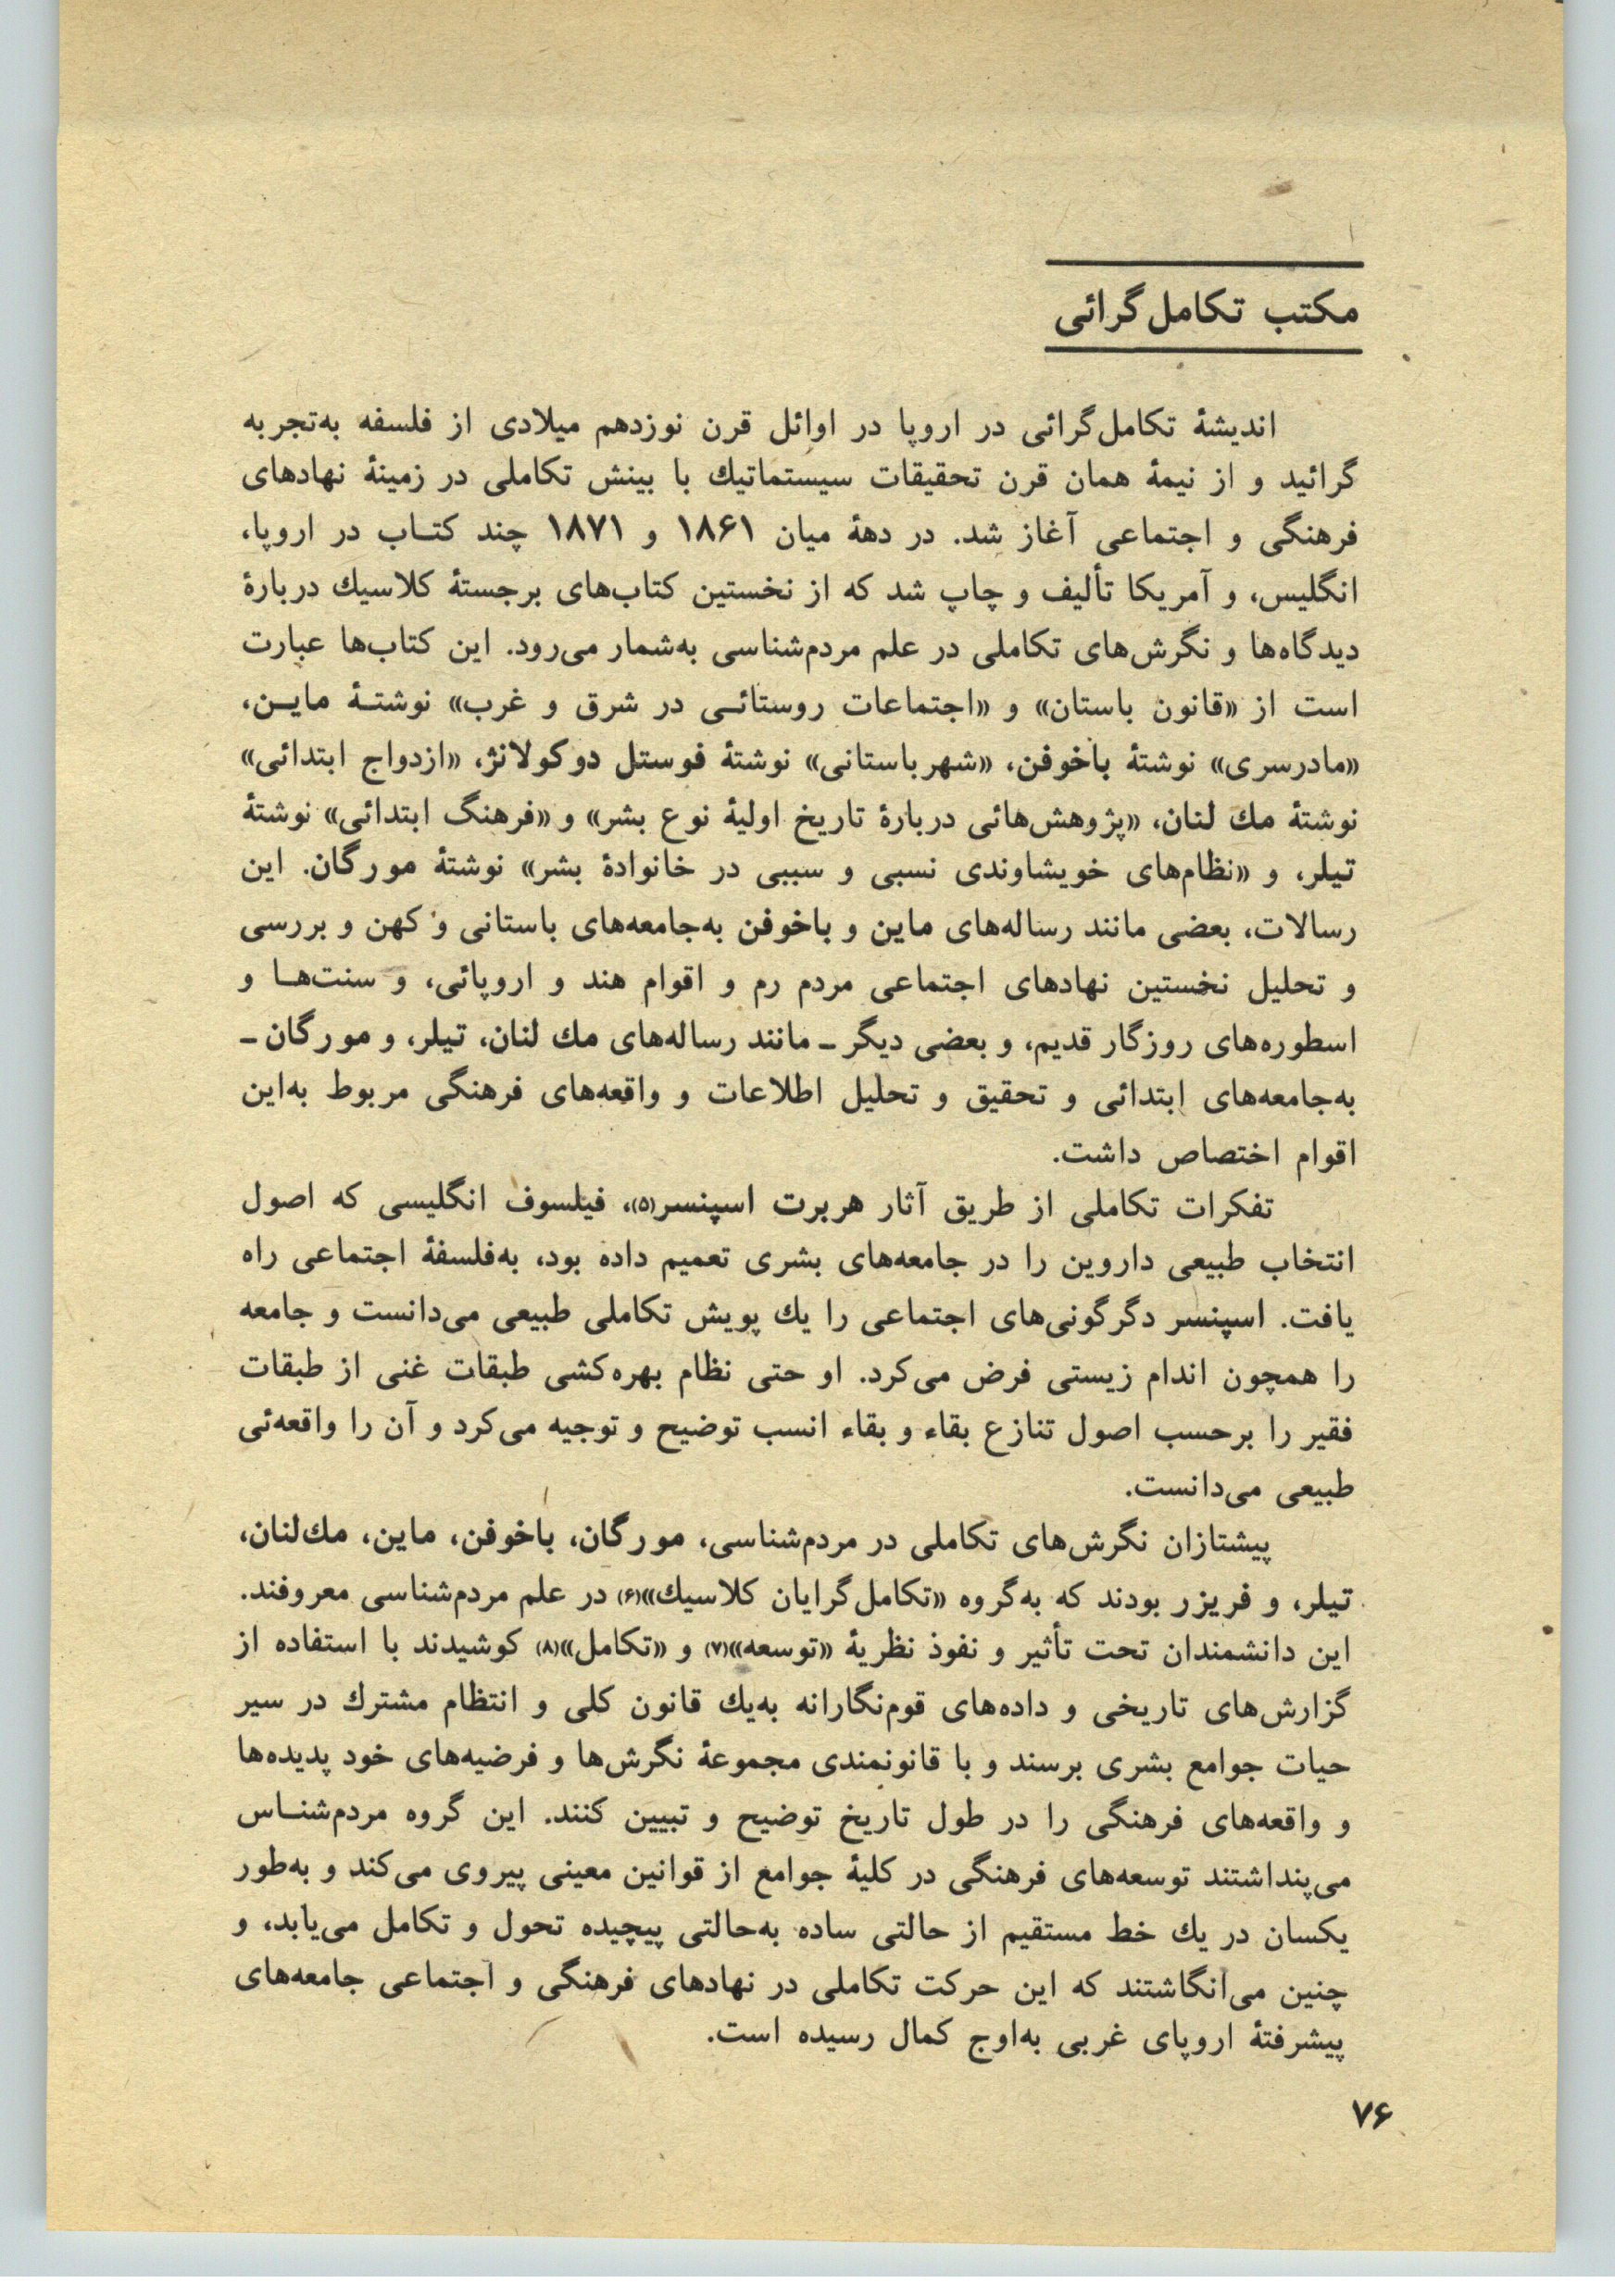 مکتب تکامل‌گرائی
اندیشهٔ تکامل‌گرائی در اروپا در اوائل قرن نوزدهم میلادی از فلسفه به‌تجربه
گرائید و از نیمهٔ همان قرن تحقیقات سیستماتیك با بینش تکاملی در زمینهٔ نهادهای
فرهنگی و اجتماعی آغاز شد. در دههٔ میان ۱۸۶۱ و ۱۸۷۱ چند کتـاب در اروپا،
انگلیس، و آمریکا تألیف و چاپ شد که از نخستین کتاب‌های برجستهٔ کلاسیك دربارهٔ
دیدگاه‌ها و نگرش‌های تکاملی در علم مردم‌شناسی به‌شمار می‌رود. این کتاب‌ها عبارت
است از «قانون باستان» و «اجتماعات روستائـی در شرق و غرب» نوشتـهٔ مایـن،
«مادرسری» نوشتهٔ باخوفن، «شهر باستانی» نوشتهٔ فوستل دوکولانژ، «ازدواج ابتدائی»
نوشتهٔ مك لنان، «پژوهش‌هائی دربارهٔ تاریخ اولیهٔ نوع بشر» و «فرهنگ ابتدائی» نوشتهٔ
تیلر، و «نظام‌های خویشاوندی نسبی و سببی در خانوادهٔ بشر» نوشتهٔ مورگان. این
رسالات، بعضی مانند رساله‌های ماین و باخوفن به‌جامعه‌های باستانی و کهن و بررسی
و تحلیل نخستین نهادهای اجتماعی مردم رم و اقوام هند و اروپائی، و سنت‌هـا و
اسطوره‌های روزگار قدیم، و بعضی دیگر ـ مانند رساله‌های مك لنان، تیلر، و مورگان ـ
به‌جامعه‌های ابتدائی و تحقیق و تحلیل اطلاعات و واقعه‌های فرهنگی مربوط به‌این
اقوام اختصاص داشت.
تفکرات تکاملی از طریق آثار هربرت اسپنسر(۵)، فیلسوف انگلیسی که اصول
انتخاب طبیعی داروین را در جامعه‌های بشری تعمیم داده بود، به‌فلسفهٔ اجتماعی راه
یافت. اسپنسر دگرگونی‌های اجتماعی را یك پویش تکاملی طبیعی می‌دانست و جامعه
را همچون اندام زیستی فرض می‌کرد. او حتی نظام بهره‌کشی طبقات غنی از طبقات
فقیر را برحسب اصول تنازع بقاء و بقاء انسب توضیح و توجیه می‌کرد و آن را واقعه‌ئی
طبیعی می‌دانست.
پیشتازان نگرش‌های تکاملی در مردم‌شناسی، مورگان، باخوفن، ماین، مك‌لنان،
تیلر، و فریزر بودند که به‌گروه «تکامل‌گرایان کلاسیك»(۶) در علم مردم‌شناسی معروفند.
این دانشمندان تحت تأثیر و نفوذ نظریهٔ «توسعه»(۷) و «تکامل»(۸) کوشیدند با استفاده از
گزارش‌های تاریخی و داده‌های قوم‌نگارانه به‌یك قانون کلی و انتظام مشترك در سیر
حیات جوامع بشری برسند و با قانونمندی مجموعهٔ نگرش‌ها و فرضیه‌های خود پدیده‌ها
و واقعه‌های فرهنگی را در طول تاریخ توضیح و تبیین کنند. این گروه مردم‌شنـاس
می‌پنداشتند توسعه‌های فرهنگی در کلیهٔ جوامع از قوانین معینی پیروی می‌کند و به‌طور
یکسان در یك خط مستقیم از حالتی ساده به‌حالتی پیچیده تحول و تکامل می‌یابد، و
چنین می‌انگاشتند که این حرکت تکاملی در نهادهای فرهنگی و اجتماعی جامعه‌های
پیشرفتهٔ اروپای غربی به‌اوج کمال رسیده است.
۷۶